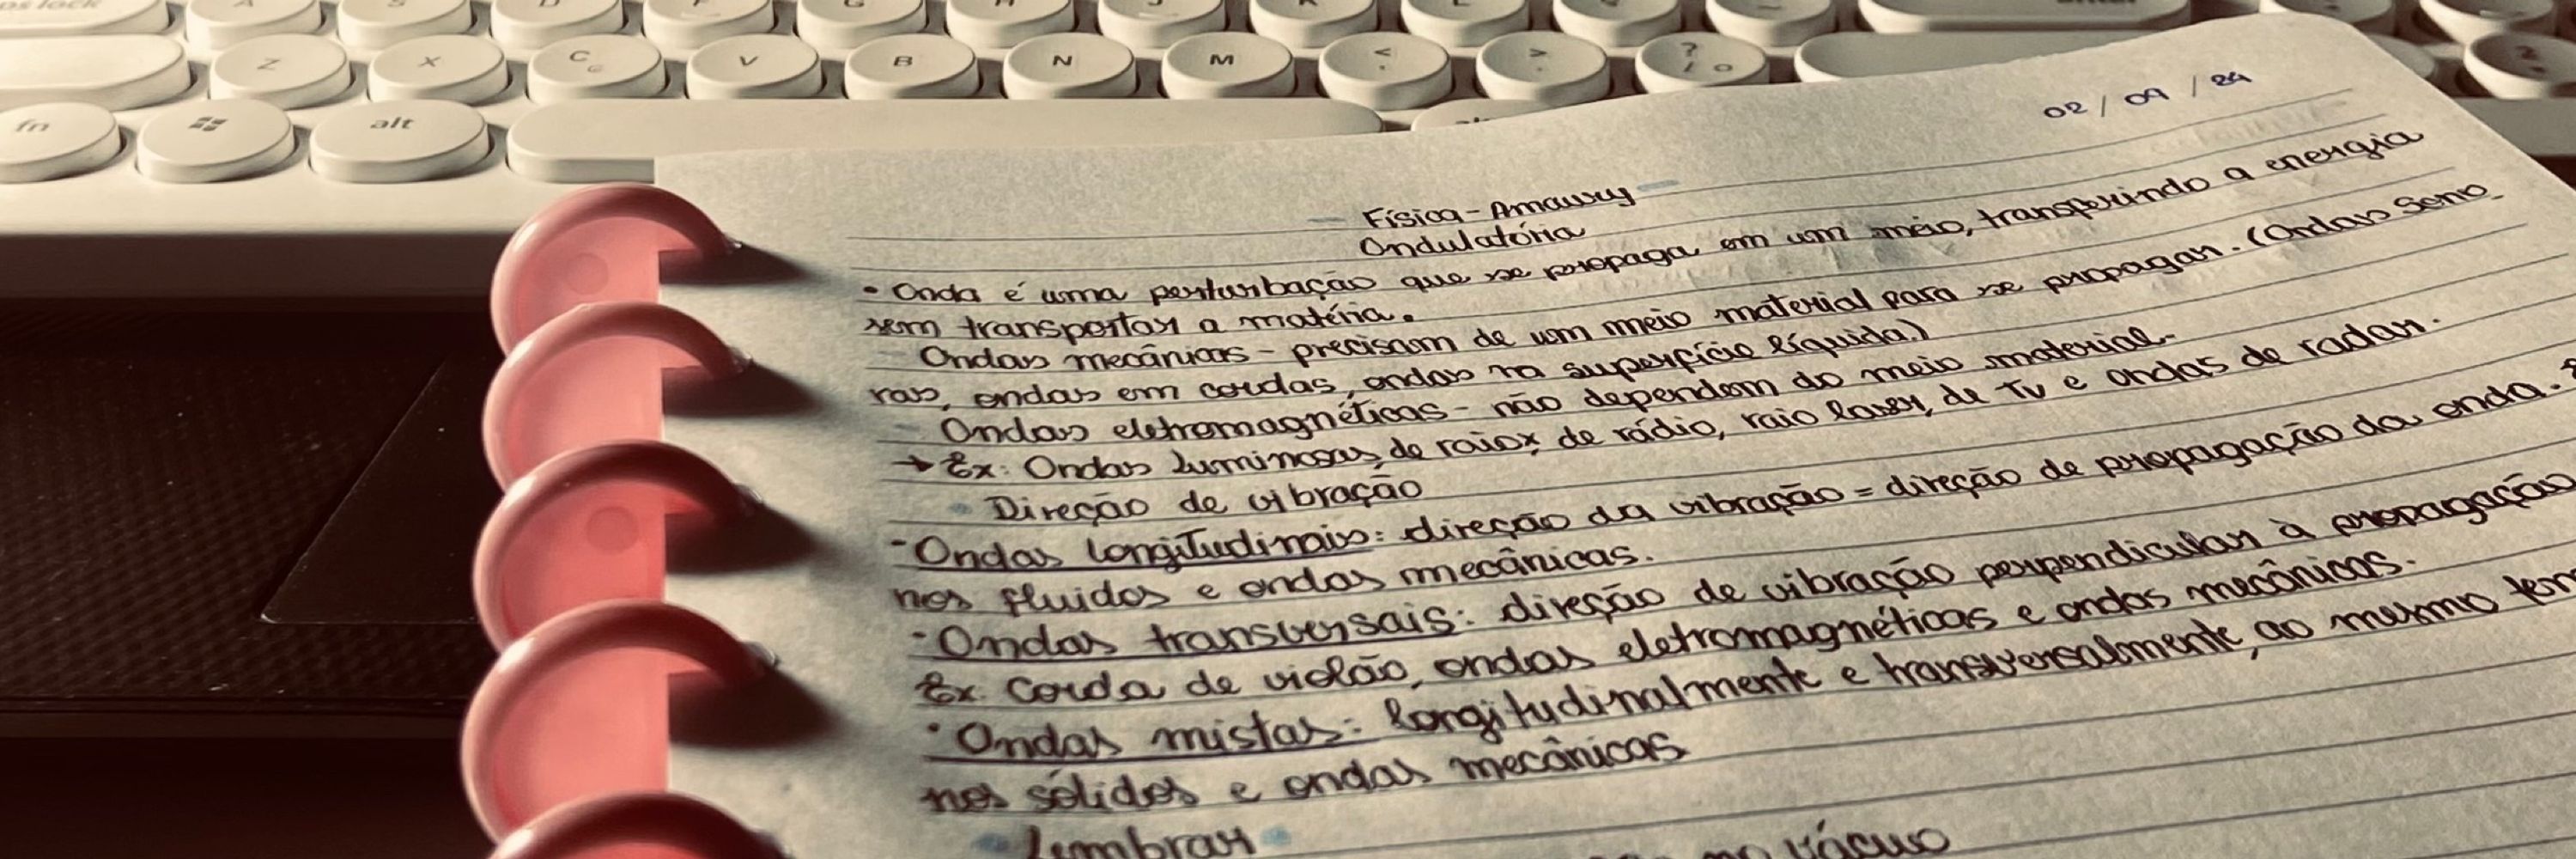 ps lock A S D F G H J K L Ç ~ enter
Z X C V B N M < , > . ? / °
fn alt
02 / 09 / 24
Física - Amaury
Ondulatória
• Onda é uma perturbação que se propaga em um meio, transferindo a energia
sem transportar a matéria.
Ondas mecânicas - precisam de um meio material para se propagar. (Ondas Sono
ras, ondas em cordas, ondas na superfície líquida.)
Ondas eletromagnéticas - não dependem do meio material.
→ Ex: Ondas luminosas, de raio x, de rádio, raio laser, de TV e ondas de radar.
Direção de vibração
- Ondas longitudinais: direção da vibração = direção de propagação da onda.
nos fluidos e ondas mecânicas.
- Ondas transversais: direção de vibração perpendicular à propagação
Ex: Corda de violão, ondas eletromagnéticas e ondas mecânicas.
· Ondas mistas: longitudinalmente e transversalmente, ao mesmo tem
nos sólidos e ondas mecânicas
Lembrar
no vácuo